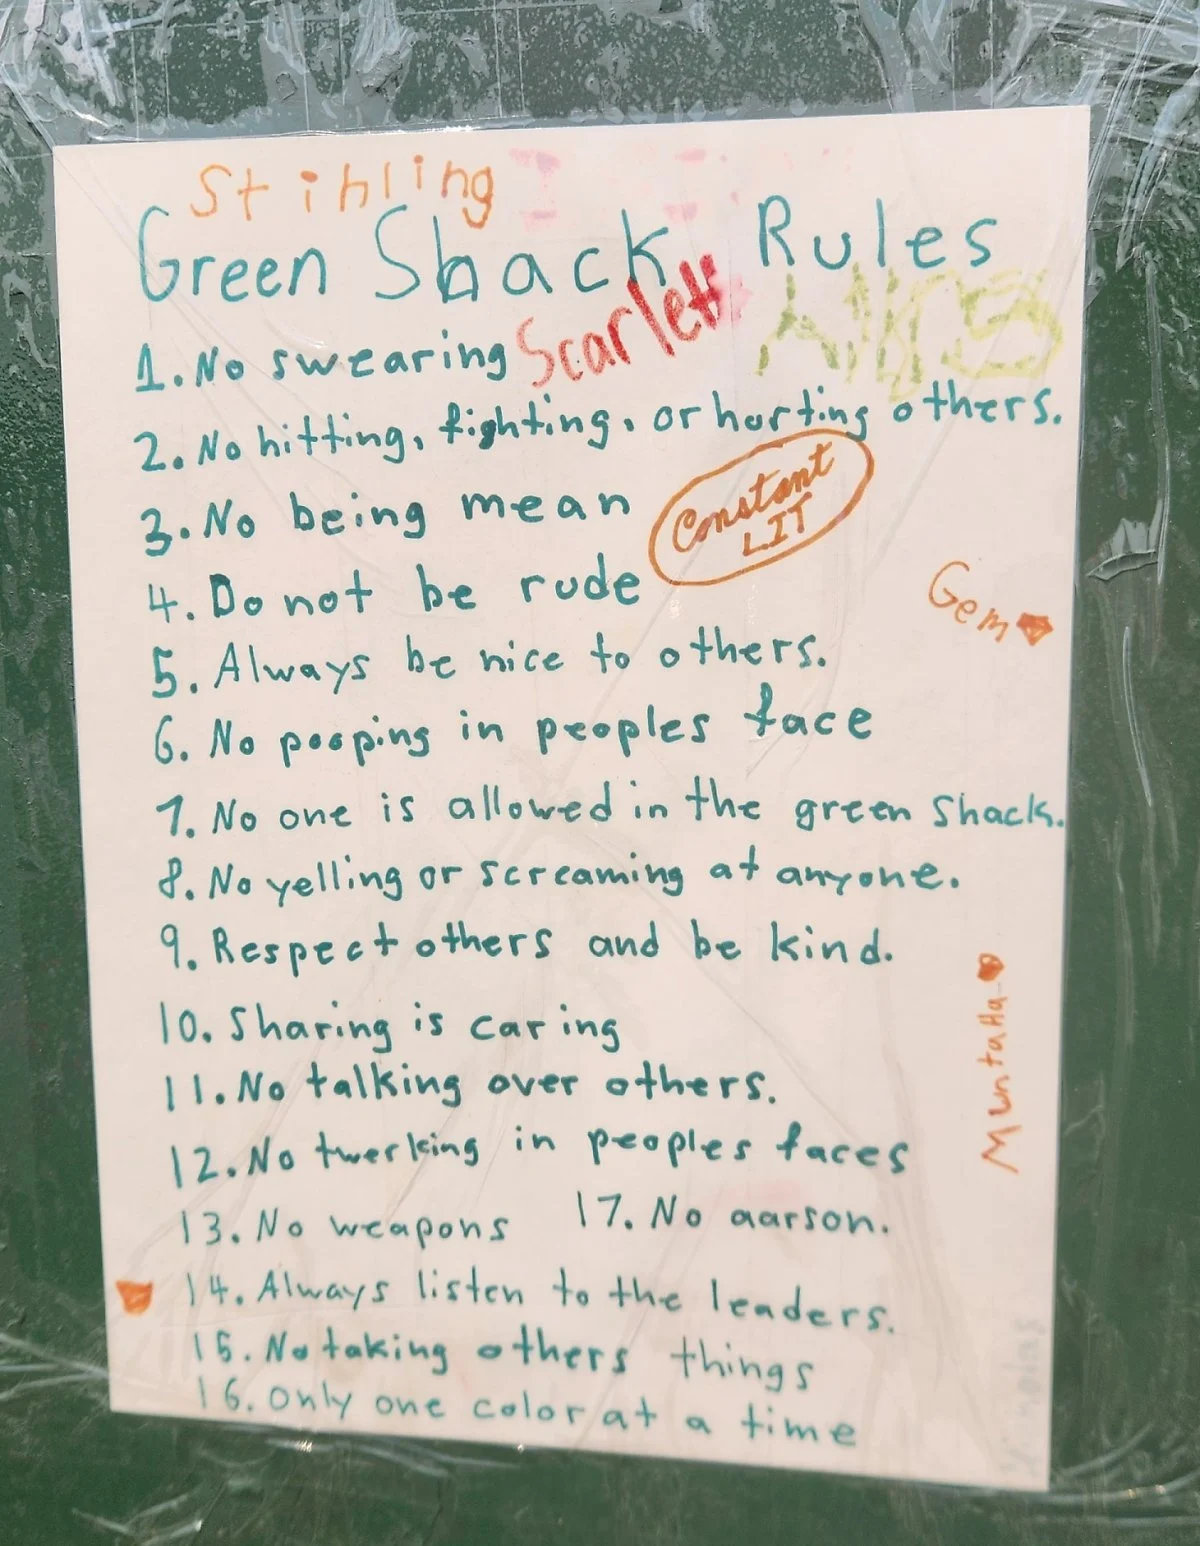 Stihling
Green Shack Rules
Scarlett
1. No swearing
2. No hitting, fighting, or hurting others.
3. No being mean
Constant
LIT
4. Do not be rude
Gem
5. Always be nice to others.
6. No pooping in peoples face
7. No one is allowed in the green shack.
8. No yelling or screaming at anyone.
9. Respect others and be kind.
10. Sharing is caring
11. No talking over others.
12. No twerking in peoples faces
13. No weapons 17. No aarson.
14. Always listen to the leaders.
15. No taking others things
16. Only one color at a time